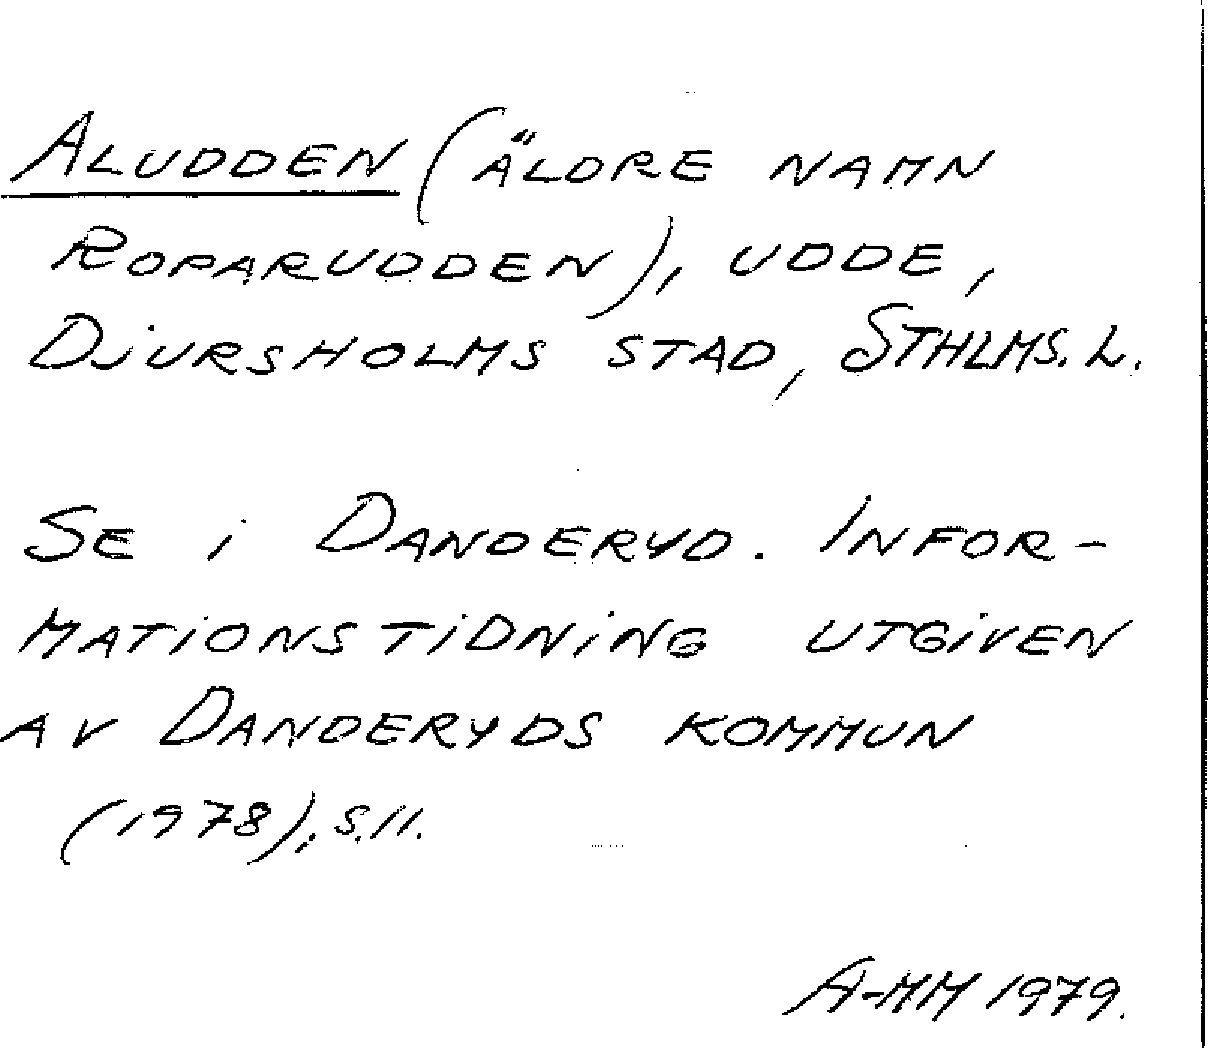 Aludden (äldre namn
Roparudden), udde,
Djursholms stad, Sthlms. l.
Se i Danderyd. Infor-
mationstidning utgiven
av Danderyds kommun
(1978), s. 11.
A-MM 1979.